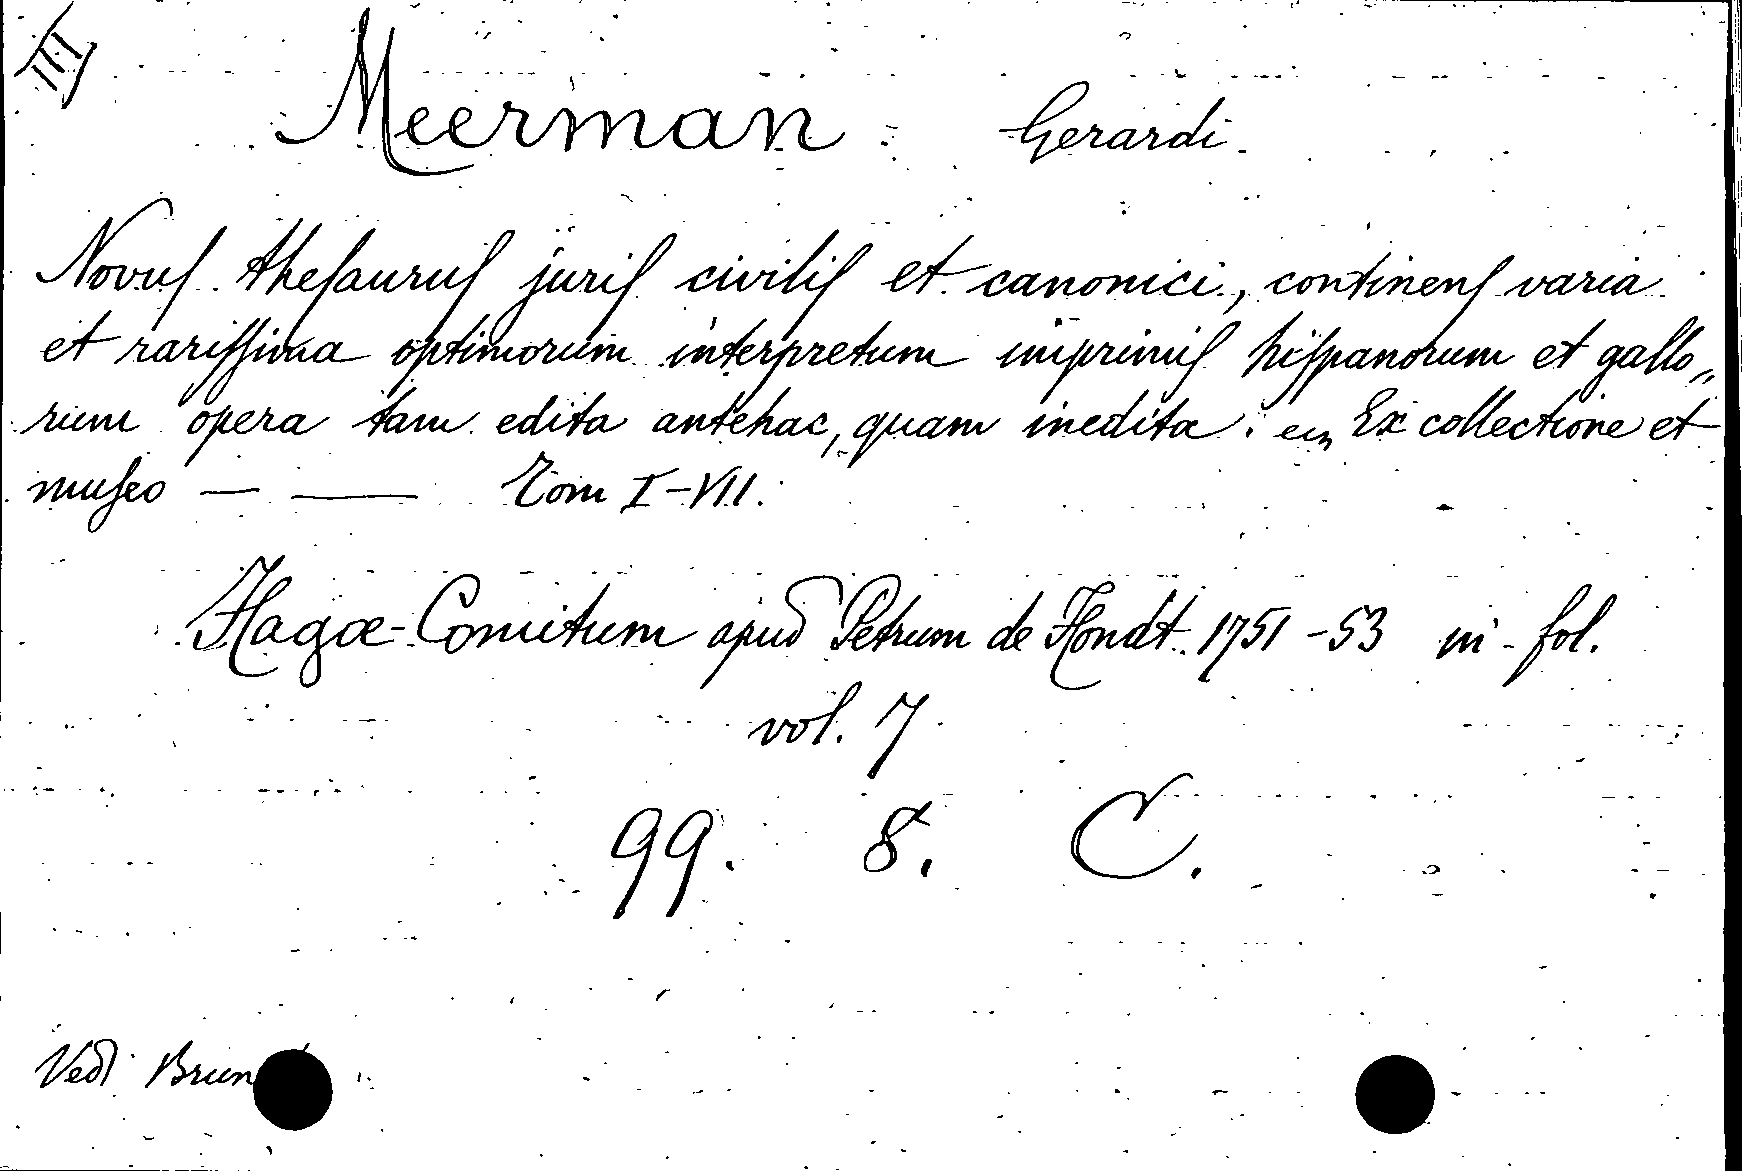 III
Meerman Gerardi
Novuſ theſauruſ juriſ civiliſ et canonici, continenſ varia
et rariſſima optimorum interpretum imprimiſ hiſpanorum et gallo„
rum opera tam edita antehac, quam inedita: Ex collectione et
muſeo — — Tom I-VII.
Hagæ-Comitum apud Petrum de Hondt 1751-53 in-fol.
vol. 7
99. 8. C.
Vedi Brun